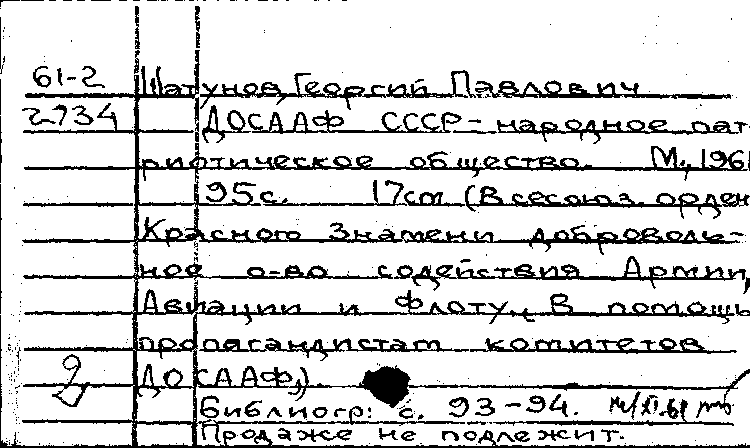 61-2 Шатунов, Георгий Павлович
2734 ДОСААФ СССР - народное пат-
риотическое общество. М., 1961
95с. 17см (Всесоюз. орден
Красного Знамени доброволь-
ное о-во содействия Армии,
Авиации и Флоту. В помощь
пропагандистам комитетов
2 ДОСААФ).
Библиогр: с. 93-94.
Продаже не подлежит.